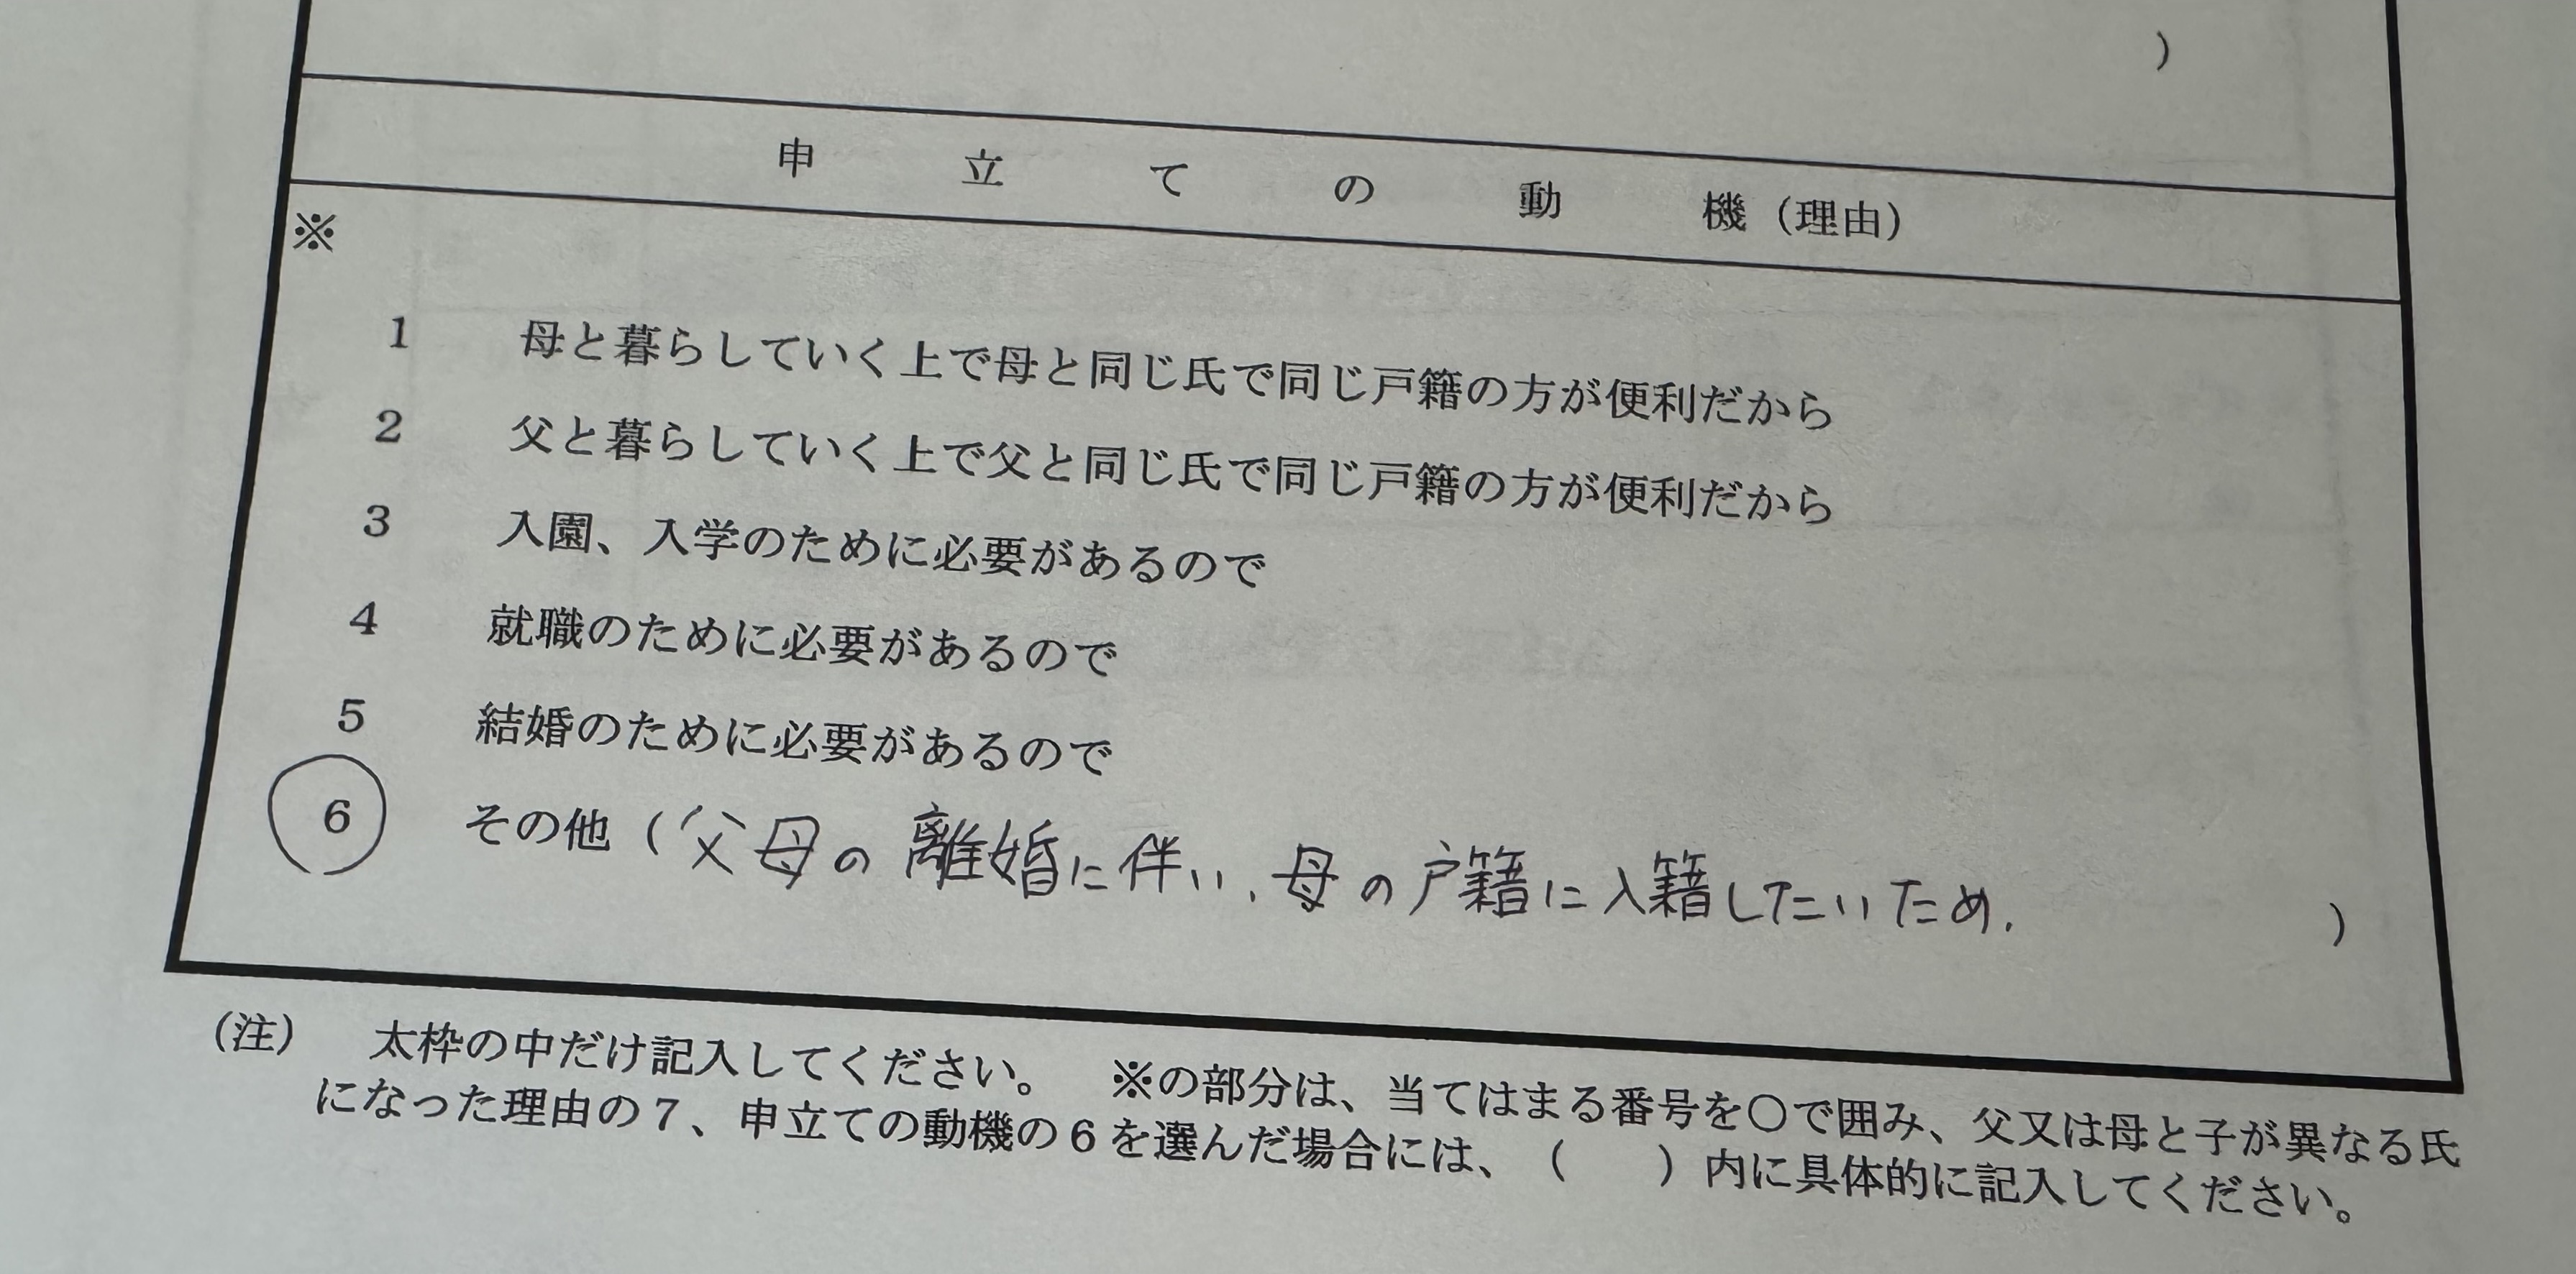 ）
申立ての動機（理由）
※
1 母と暮らしていく上で母と同じ氏で同じ戸籍の方が便利だから
2 父と暮らしていく上で父と同じ氏で同じ戸籍の方が便利だから
3 入園、入学のために必要があるので
4 就職のために必要があるので
5 結婚のために必要があるので
6 その他（父母の離婚に伴い、母の戸籍に入籍したいため。）
（注） 太枠の中だけ記入してください。 ※の部分は、当てはまる番号を○で囲み、父又は母と子が異なる氏
になった理由の７、申立ての動機の６を選んだ場合には、（　　）内に具体的に記入してください。